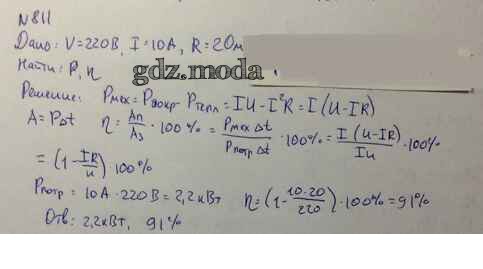 N 811
Дано: V=220В, I=10А, R=2Ом
Найти: P, η
gdz.moda
Решение: Pмех = Pпотр - Pтепл = IU - I²R = I(U-IR)
A = PΔt η = Aп/Aз · 100% = Pмех Δt / Pпотр Δt · 100% = I(U-IR)/IU · 100%
= (1 - IR/U) · 100%
Pпотр = 10А · 220В = 2,2кВт η = (1 - 10·20/220) · 100% = 91%
Отв: 2,2кВт, 91%